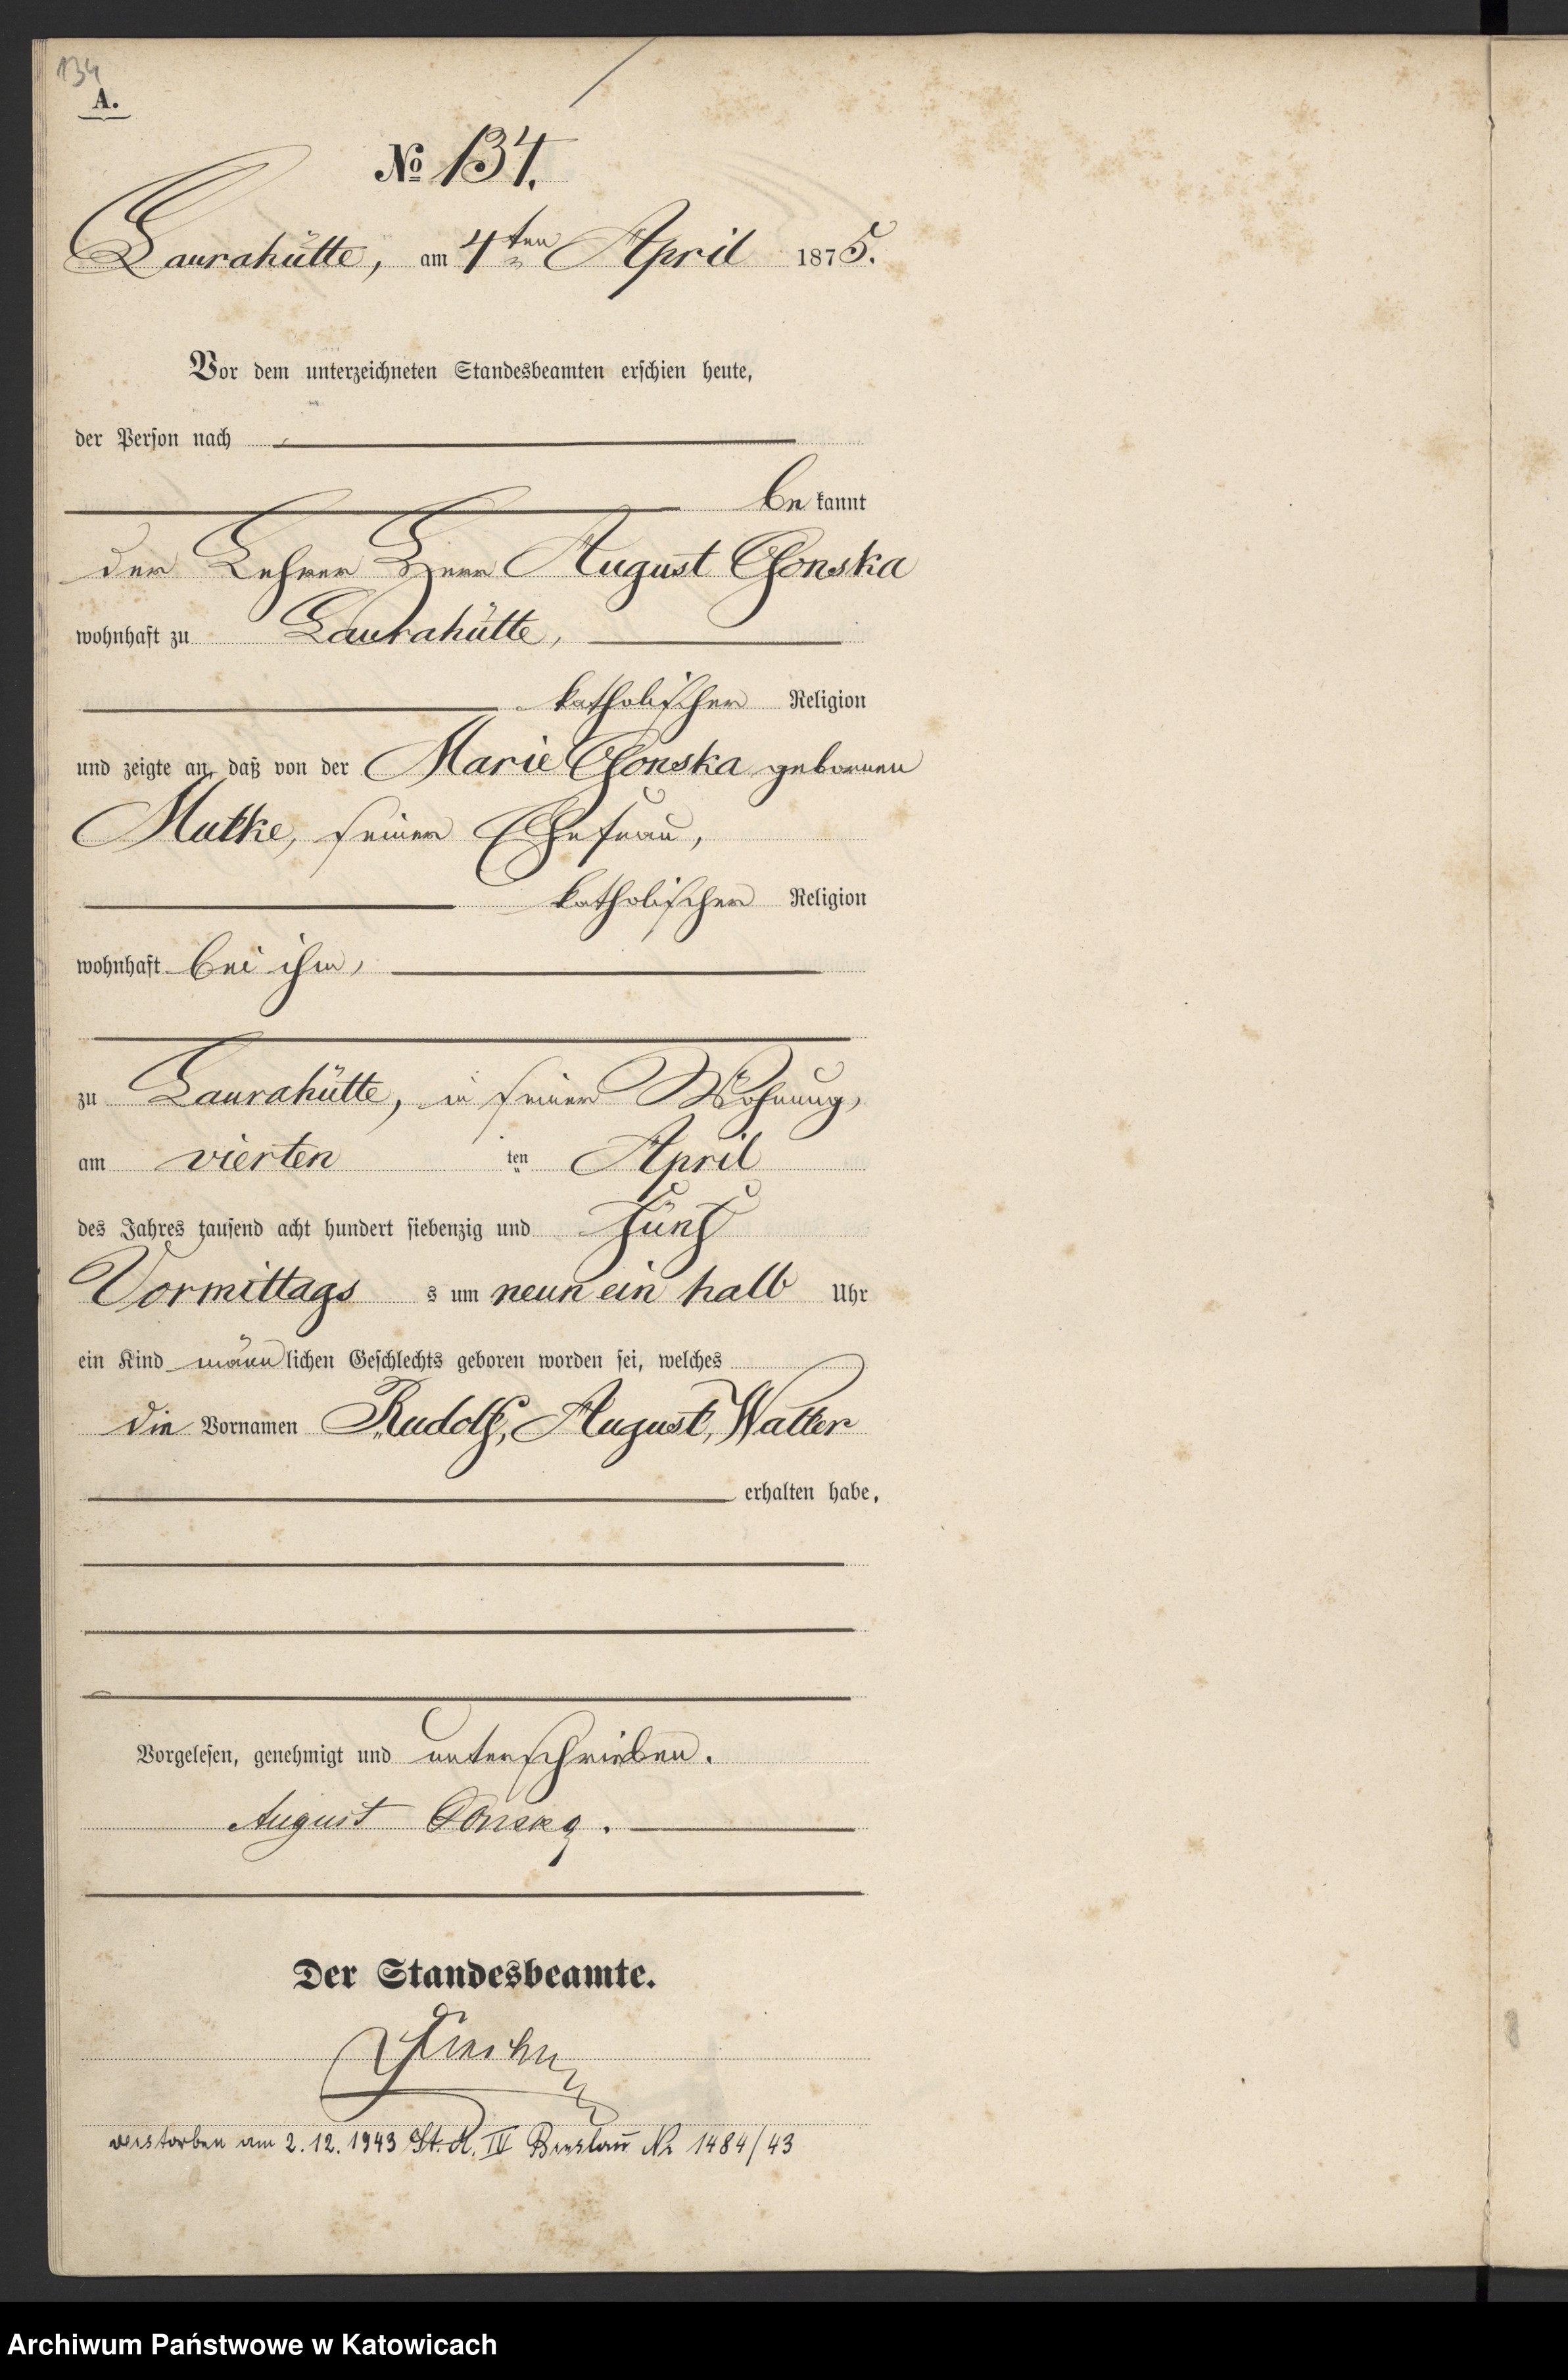 134
A.
No 134.
Laurahütte, am 4ten April 1875.
Vor dem unterzeichneten Standesbeamten erschien heute,
der Person nach
be kannt
der Lehrer Herr August
wohnhaft zu Laurahütte,
katholischer Religion
und zeigte an, daß von der Marie gebornen
Mutke, seiner Ehefrau,
katholischer Religion
wohnhaft bei ihm,
zu Laurahütte, in seiner Wohnung,
am vierten ten April
des Jahres tausend acht hundert siebenzig und fünf
Vormittags s um neun ein halb Uhr
ein Kind männlichen Geschlechts geboren worden sei, welches
die Vornamen Rudolf, August, Walter
erhalten habe,
Vorgelesen, genehmigt und unterschrieben.
August
Der Standesbeamte.
verstorben am 2.12.1943 St. A. IV Breslau Nr 1484/43
Archiwum Państwowe w Katowicach